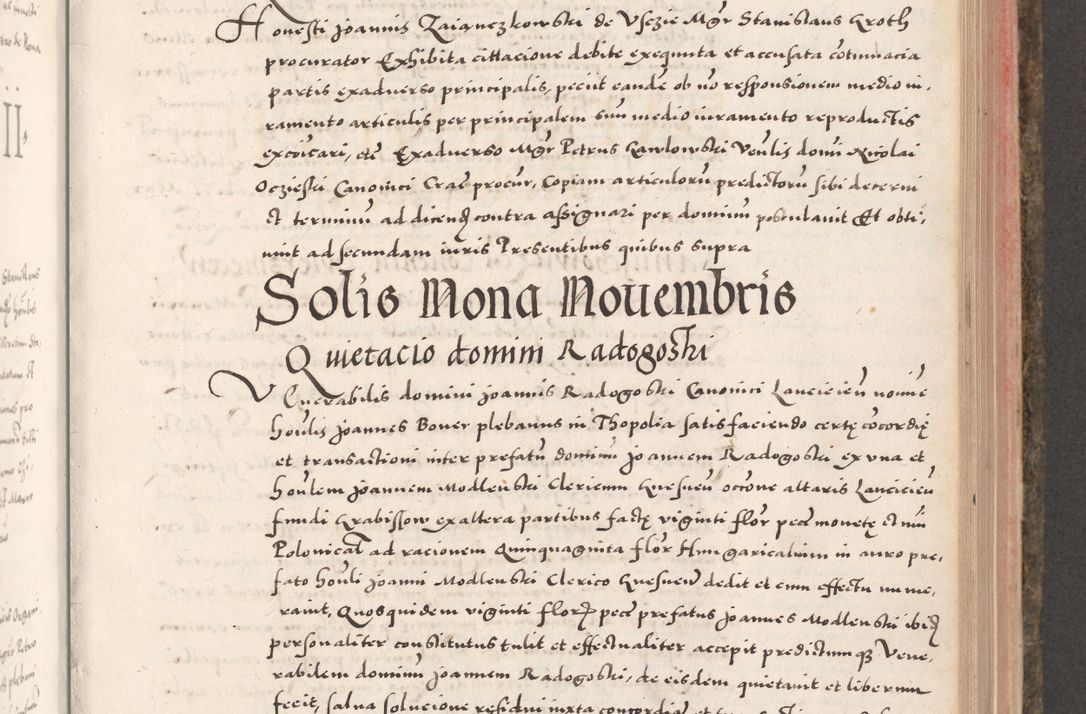 Honesti Joannis Zaiączkowski de Vsczie Mgr Stanislaus Kroth
procurator Exhibita cittacione debite exequuta et accusata cotumacia
partis exadverso principalis, peciit eandē ob nō responsionem medio iu,
ramento articulis per principalem suū medio iuramento reproductis
excōicari, etc Exadverso Mgr Petrus Kawlowski Venlis domī Nicolai
Oczieski Canonici Crac procur, Copiam articulorū predictorū sibi decerni
et terminū ad dicend contra assignari per dominū postulavit Et obti,
nuit ad secundam iuris Presentibus quibus supra
Solis Nona Novembris
Quietacio domini Radogoski
Venerabilis domini Joannis Radogoski Canonici Lancicieñ noīne
honlis Joannes Bover plebanus in Thopolia satisfaciendo certę cōcordię
et transactioni inter prefatū dominū Joannem Radogoski ex vna et
honlem Joannem Modlenski Clericum Gnesneñ occōne altaris Lancicieñ
fundi Grabissow ex altera partibus factę viginti flor pecē monetę et nū
Polonical ad racionem Quinquaginta flor Hungaricalium in auro pre,
fato honli Joanni Modlenski Clerico Gnesneñ dedit et cum effectu nume,
ravit, Quosquidem viginti flor pecē prefatus Joannes Modlenski ibid
personaliter constitutus tulit et effectualiter accepit predictumq Vene,
rabilem dominū Joannem Radogoski, de eisdem quietavit et liberum
fecit, salva solucione residui iuxta concordiam et